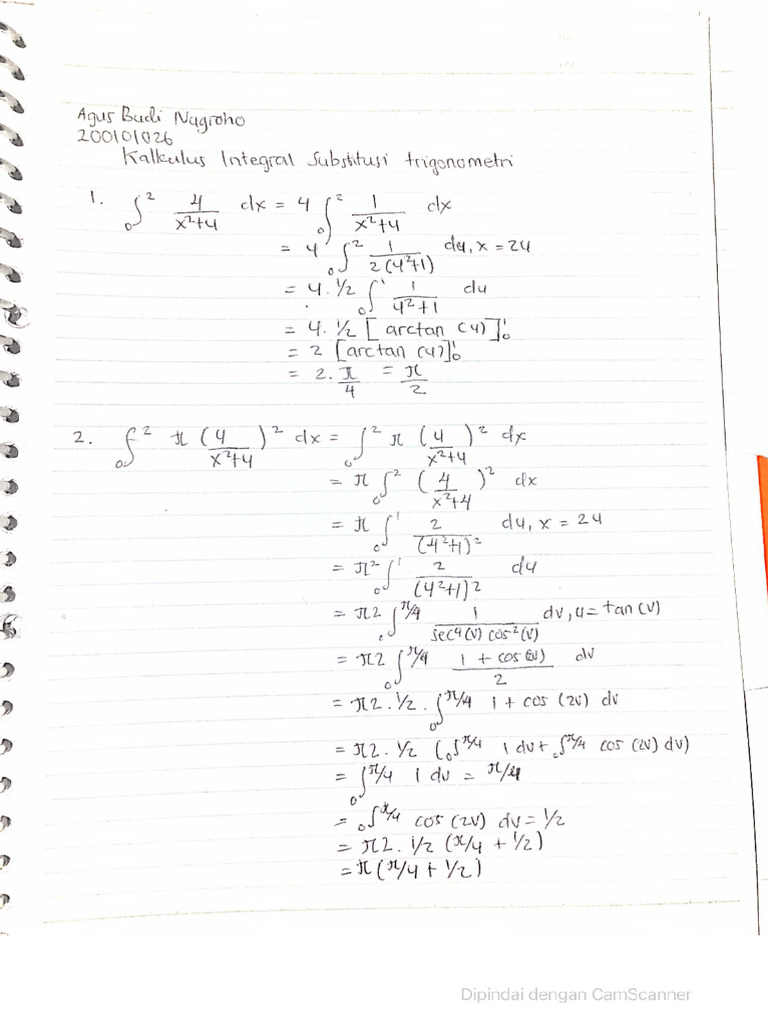 Agus Budi Nugroho
200101026
Kalkulus Integral Substitusi trigonometri
1. ₀∫² 4/(x²+4) dx = 4 ₀∫² 1/(x²+4) dx
= 4 ₀∫² 1/(2(u²+1)) du, x = 2u
= 4. 1/2 ₀∫¹ 1/(u²+1) du
= 4. 1/2 [arctan (u)]₀¹
= 2 [arctan (u)]₀¹
= 2. π/4 = π/2
2. ₀∫² π (4/(x²+4))² dx = ₀∫² π (4/(x²+4))² dx
= π ₀∫² (4/(x²+4))² dx
= π ₀∫¹ 2/(u²+1)² du, x = 2u
= π² ₀∫¹ 2/(u²+1)2 du
= π2 ₀∫π/4 1/(sec⁴(v) cos⁻²(v)) dv, u = tan(v)
= π2 ₀∫π/4 (1 + cos(2v))/2 dv
= π2. 1/2. ₀∫π/4 1 + cos (2v) dv
= π2. 1/2 (₀∫π/4 1 dv + ₀∫π/4 cos (2v) dv)
= ₀∫π/4 1 dv = π/4
= ₀∫π/4 cos (2v) dv = 1/2
= π2. 1/2 (π/4 + 1/2)
= π (π/4 + 1/2)
Dipindai dengan CamScanner